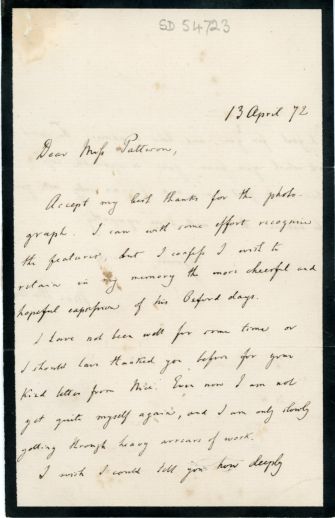 SD 54723
13 April 72
Dear Miss Pattison,
Accept my best thanks for the photo-
graph. I can with some effort recognise
the features, but I confess I wish to
retain in my memory the more cheerful and
hopeful expression of his Oxford days.
I have not been well for some time or
I should have thanked you before for your
kind letter from Nice. Even now I am not
yet quite myself again, and I am only slowly
getting through heavy arrears of work.
I wish I could tell you how deeply